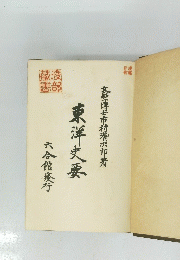 文學博士市村瓚次郎著
東洋史要
六合館發行